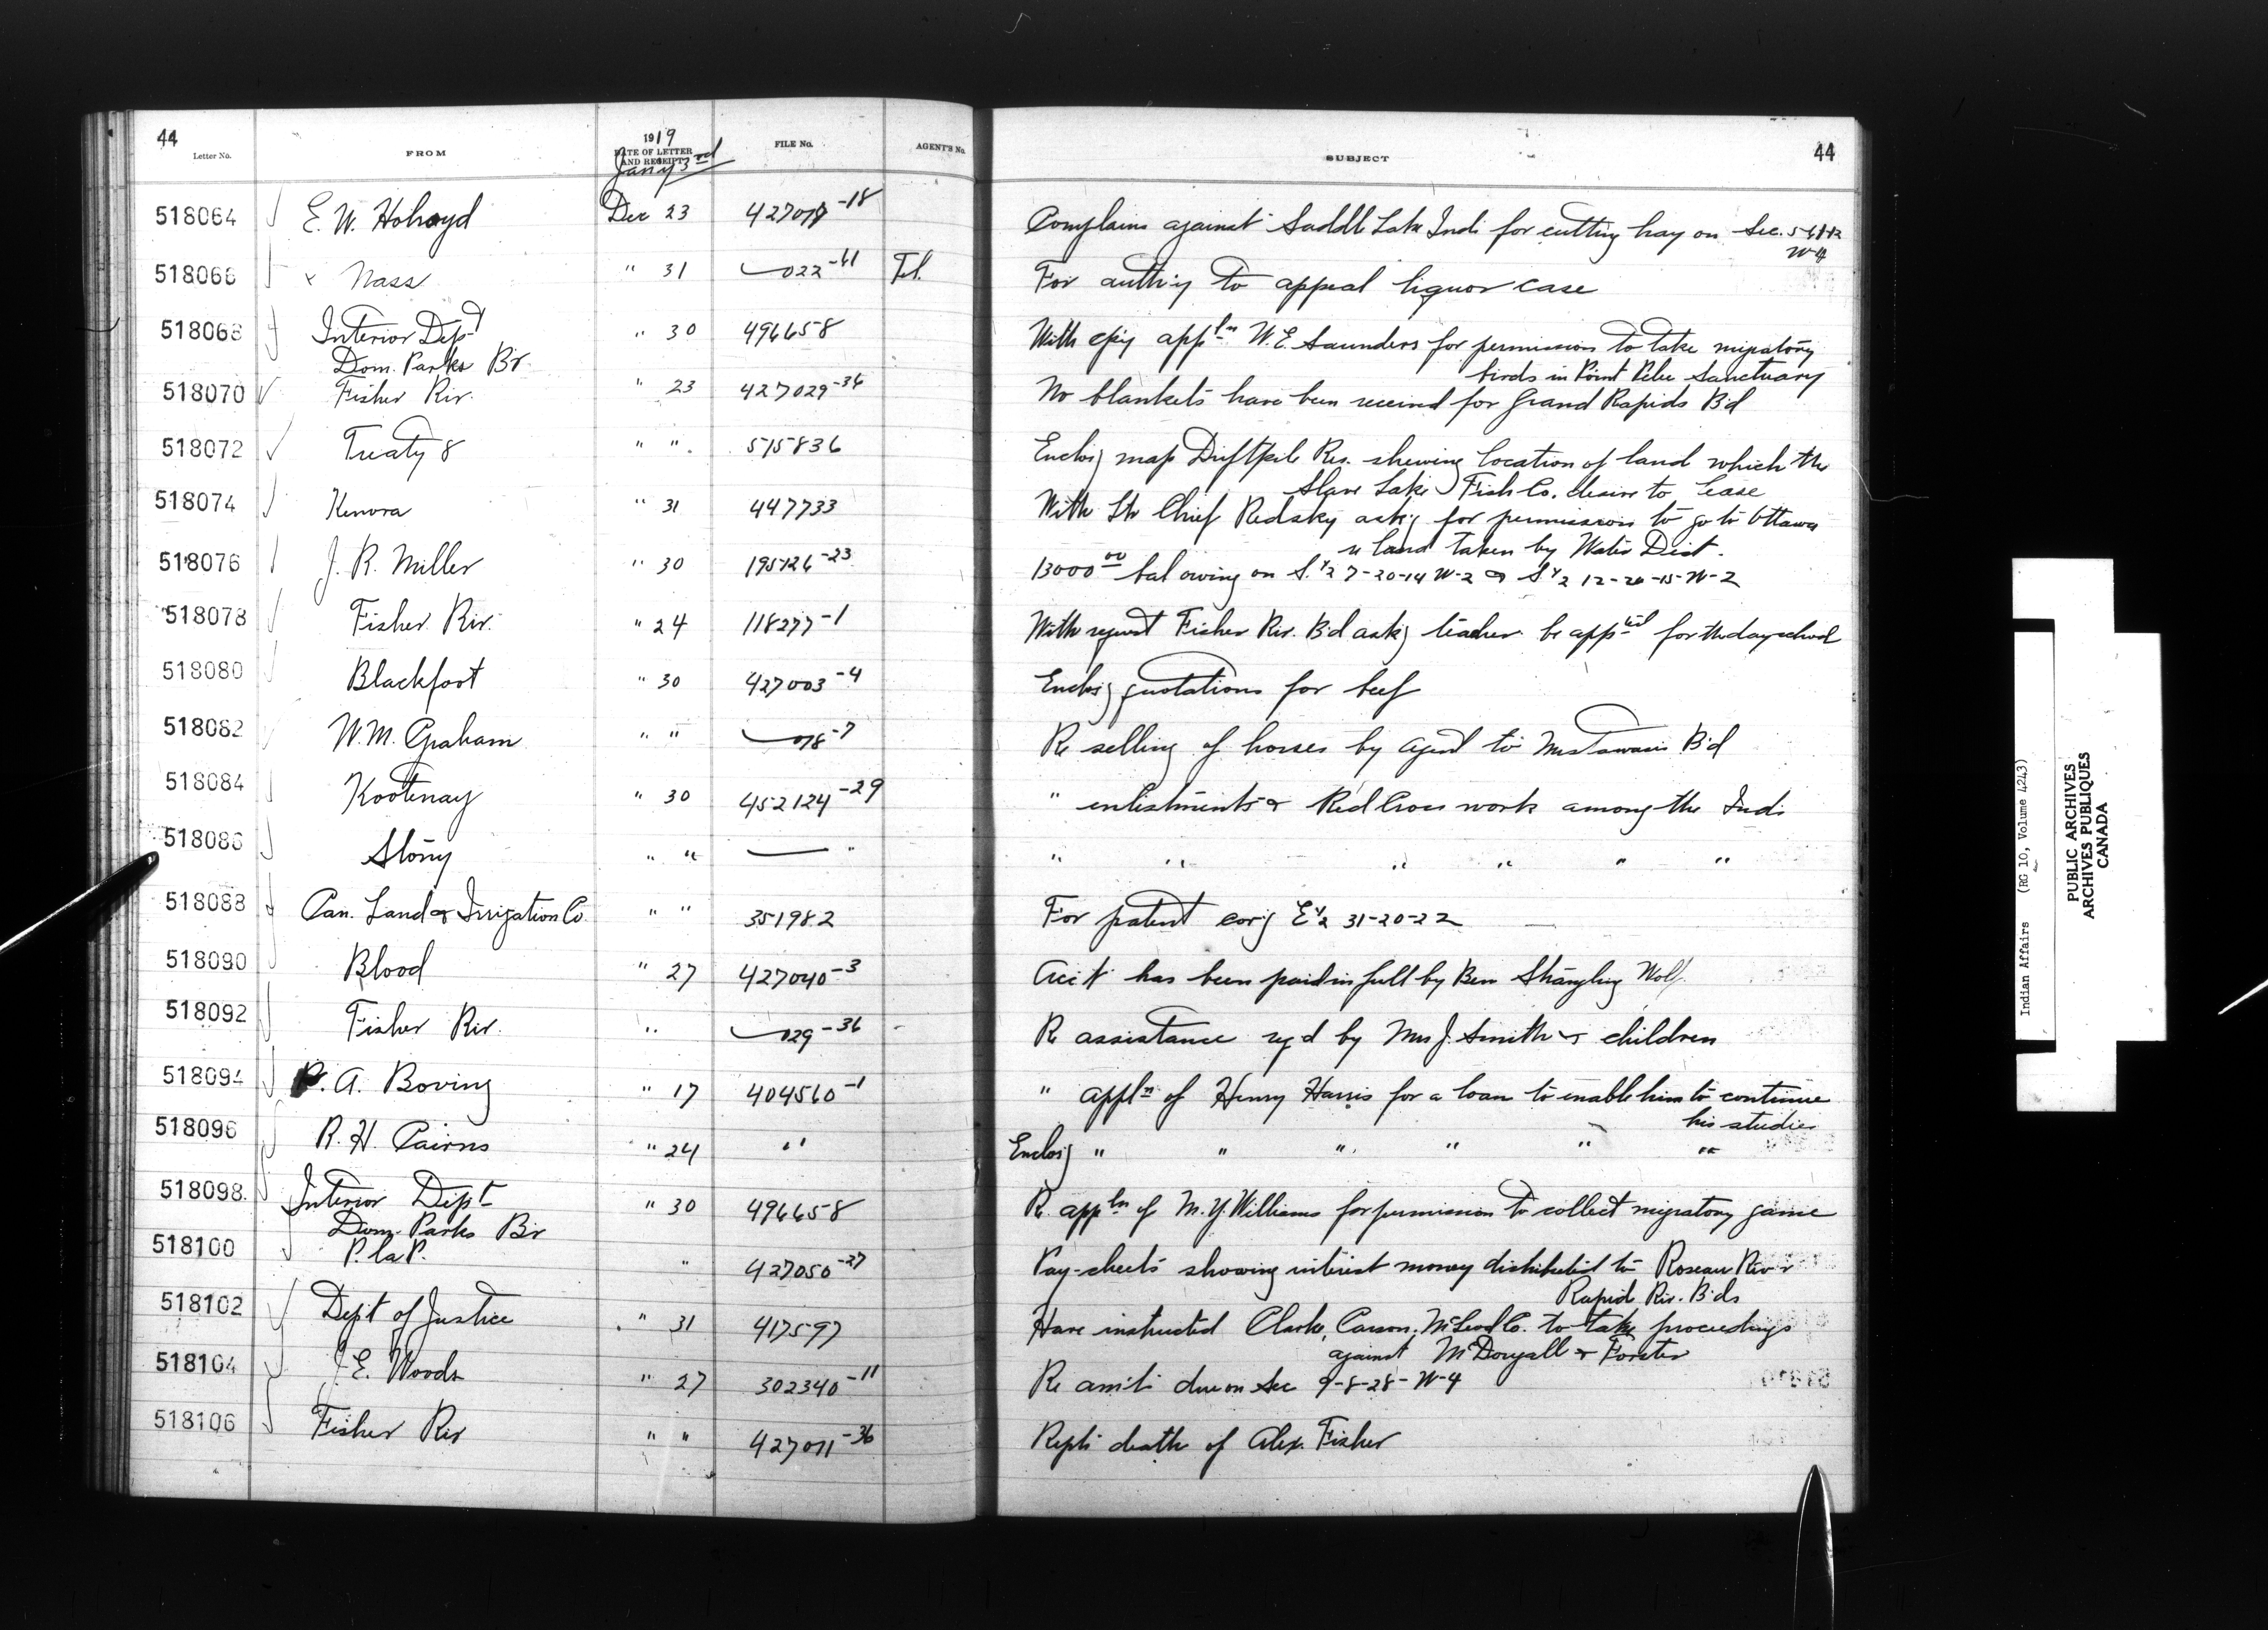 44
Letter No. FROM 1919 DATE OF LETTER AND RECEIPT FILE No. AGENT'S No. SUBJECT 44
Jan'y 3rd
518064 E. W. Holroyd Dec 23 427018-18 Complains against Saddle Lake Inds for cutting hay on Sec.
W-4
518066 Nass " 31 022-41 Tel. For auth'y to appeal liquor case
518068 Interior Dept " 30 496658 With c'py appln W. E. Saunders for permission to take migratory
Dom. Parks Br. birds in Point Pelee Sanctuary
518070 Fisher Riv. " 23 427029-36 No blankets have been received for Grand Rapids B'd
518072 Treaty 8 " " 515836 Enclos'g map Driftpile Res. shewing location of land which the
Slave Lake Fish Co. desire to lease
518074 Kenora " 31 447733 With Ltr Chief Redsky ask'g for permission to go to Ottawa
re land taken by Water Dist.
518076 J. R. Miller " 30 195126-23 13000 00 bal owing on S. 1/2 7-20-14 W-2 & S 1/2 12-20-15-W-2
518078 Fisher Riv. " 24 118277-1 With request Fisher Riv. B'd ask'g teacher be app'ted for the day school
518080 Blackfoot " 30 427003-4 Enclos'g quotations for beef
518082 W. M. Graham " " 078-7 Re selling of horses by Agent to Mistawasis B'd
518084 Kootenay " 30 452124-29 " enlistments & Red Cross work among the Inds
518086 Stony " " " " " " " " "
518088 Can. Land & Irrigation Co. " " 351982 For patent cov'g E 1/2 31-20-22
518090 Blood " 27 427040-3 Acc't has been paid in full by Ben Strangling Wolf
518092 Fisher Riv. " 029-36 Re assistance rq'd by Mrs J. Smith & children
518094 P. A. Boving " 17 404560-1 " appln of Henry Harris for a loan to enable him to continue
his studies
518096 R. H. Cairns " 24 " Enclos'g " " " " " "
518098 Interior Dept " 30 496658 Re appln of M. Y. Williams for permission to collect migratory game
Dom. Parks Br
518100 P. la P. " 427050-27 Pay-sheets showing interest money distributed to Roseau Riv &
Rapid Riv. B'ds
518102 Dept of Justice " 31 417597 Have instructed Clarke, Carson, McLeod Co. to take proceedings
against McDougall & Forster
518104 J. E. Woods " 27 302340-11 Re am't due on Sec 9-8-28-W-4
518106 Fisher Riv " " 427011-36 Repts death of Alex. Fisher
Indian Affairs (RG 10, Volume 4243)
PUBLIC ARCHIVES
ARCHIVES PUBLIQUES
CANADA